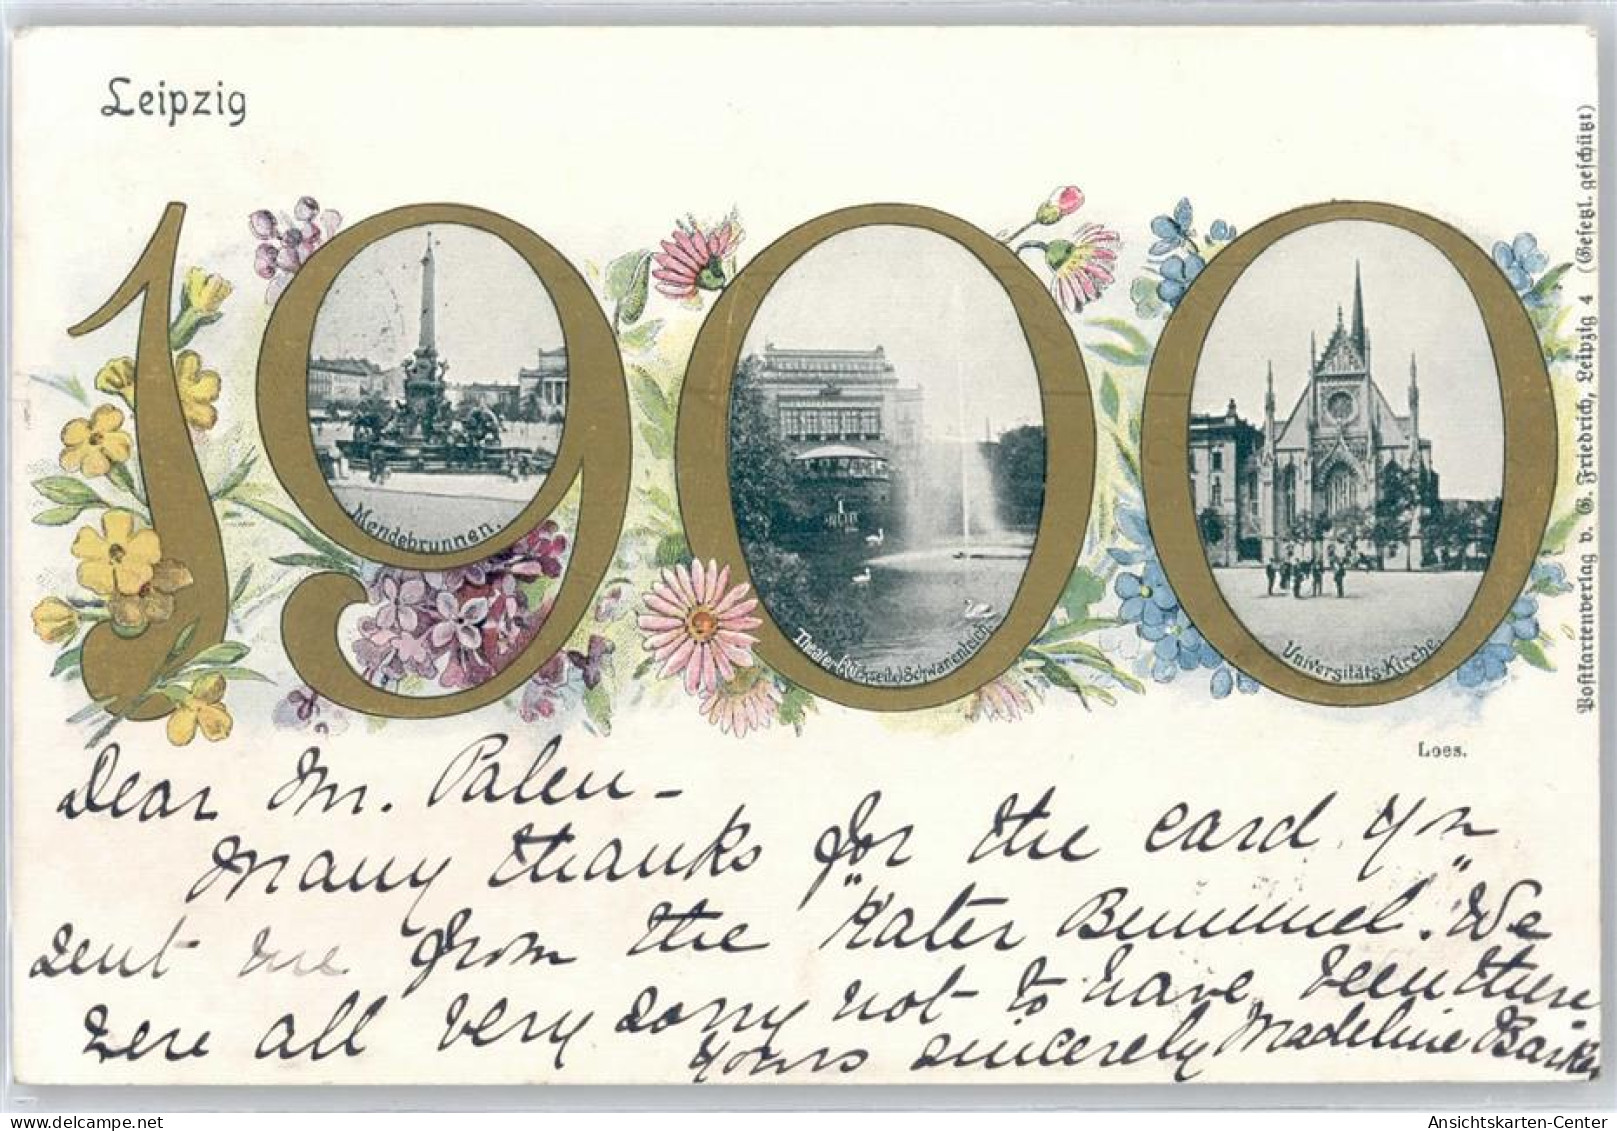 Leipzig
1900
Mendebrunnen.
Theater (Rückseite) Schwanenteich.
Universitäts-Kirche.
Loes.
Postkartenverlag v. G. Friedrich, Leipzig 4 (Gesetzl. geschützt)
Dear Mr. Palen –
Many thanks for the card yo
sent me from the "Kater Bummel". We
were all very sorry not to have been there
Yours sincerely Madeline Barker
Ansichtskarten-Center